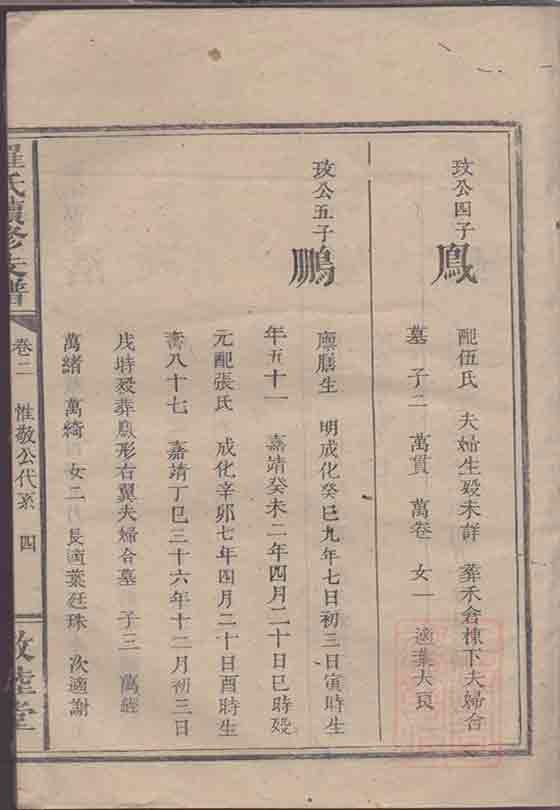 玫公四子
鳳
配伍氏　夫婦生歿未詳　葬禾倉棟下夫婦合
墓　子二　萬貫　萬卷　女一　適葉大良
玫公五子
鵬
廪膳生　明成化癸巳九年七日初三日寅時生
年五十一　嘉靖癸未二年四月二十日巳時歿
元配張氏　成化辛卯七年四月二十日酉時生
壽八十七　嘉靖丁巳三十六年十二月初三日
戌時歿葬鳳形右翼夫婦合墓　子三　萬經
萬緒　萬綺　女二　長適葉廷珠　次適謝
羅氏續修支譜
卷二　惟敬公代系　四
敦睦堂